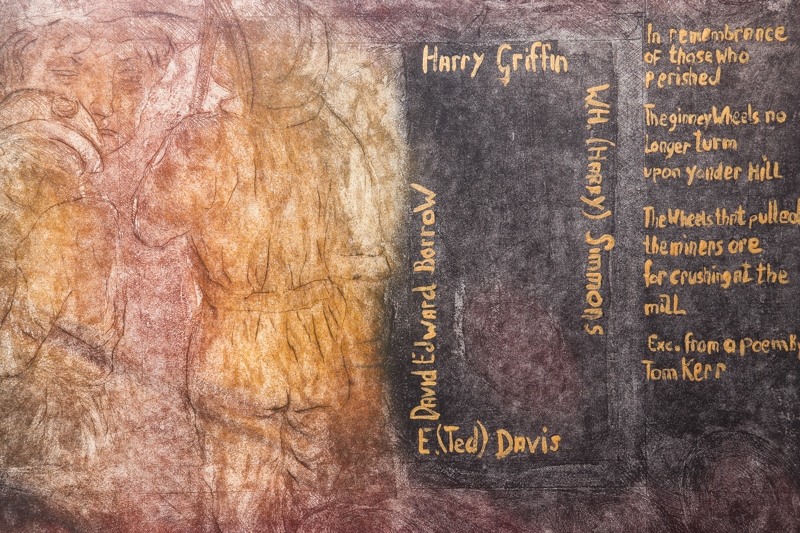 Harry Griffin
WH. (Harry) Simmons
David Edward Borrow
E.(Ted) Davis
In remembrance
of those who
perished
The ginney Wheels no
Longer turm
upon yander Hill
The Wheels that pulled
the miners are
for crushing at the
mill
Exc. from a poem by
Tom Kerr